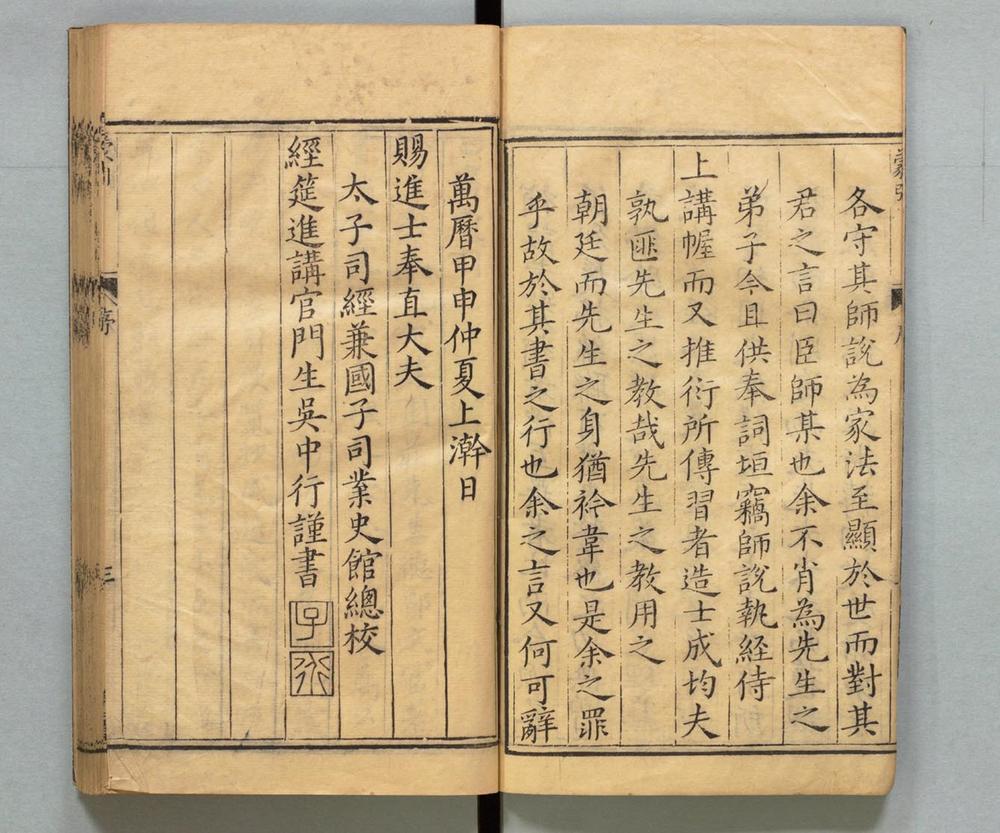 各守其師說為家法至顯於世而對其
君之言曰臣師某也余不肖為先生之
弟子今且供奉詞垣竊師說執經侍
上講幄而又推衍所傳習者造士成均夫
孰匪先生之教哉先生之教用之
朝廷而先生之身猶衿韋也是余之罪
乎故於其書之行也余之言又何可辭
萬曆甲申仲夏上澣日
賜進士奉直大夫
太子司經兼國子司業史館總校
經筵進講官門生吳中行謹書
子行
序
三